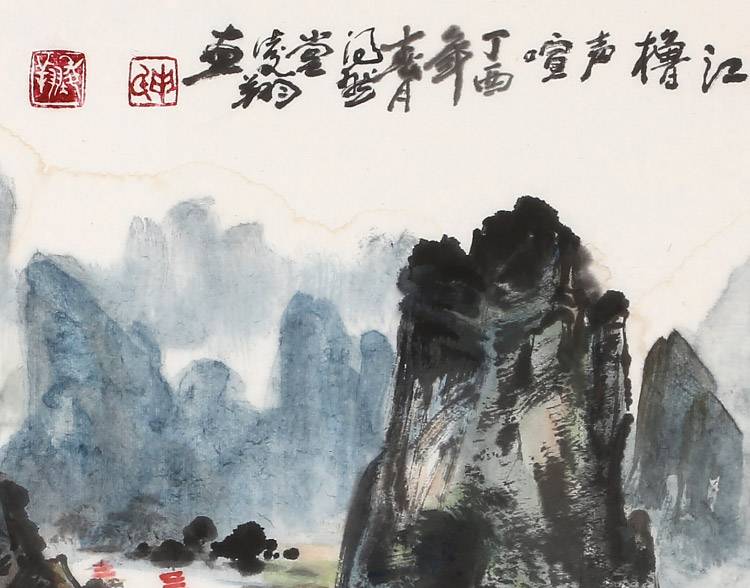 江櫓声喧丁酉年春月
堂凌翔画